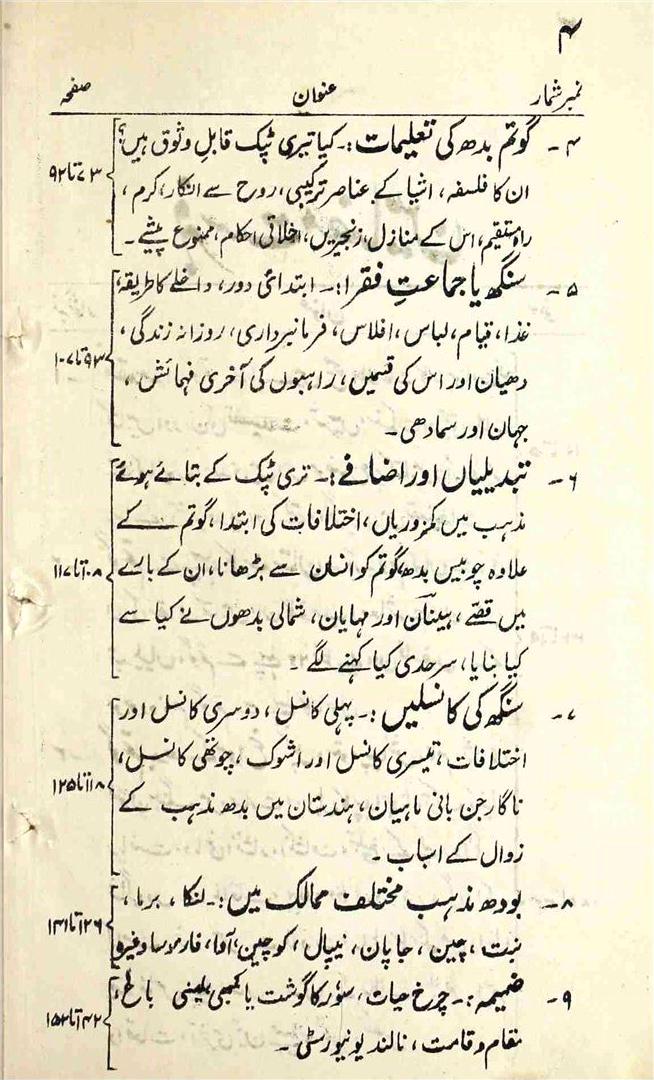 ۴
نمبر شمار عنوان صفحہ
۴ - گوتم بدھ کی تعلیمات :۔ کیا تیری ٹپک قابلِ وثوق ہیں؟
ان کا فلسفہ، اشیا کے عناصر ترکیبی، روح سے انکار، کرم، ۷۳ تا ۹۲
راہ مستقیم، اس کے منازل، زنجیریں، اخلاقی احکام، ممنوع پیشے ۔
۵ - سنگھ یا جماعتِ فقرا :۔ ابتدائی دور، داخلے کا طریقہ،
غذا، قیام، لباس، افلاس، فرمانبرداری، روزانہ زندگی، ۹۳ تا ۱۰۷
دھیان اور اس کی قسمیں، راہبوں کی آخری فہمائش،
جہان اور سمادھی ۔
۶ - تبدیلیاں اور اضافے :۔ تری ٹپک کے بتائے ہوئے
مذہب میں کمزوریاں، اختلافات کی ابتدا، گوتم کے
علاوہ چوبیس بدھ، گوتم کو انسان سے بڑھانا، ان کے بارے ۱۰۸ تا ۱۱۷
میں قصے، ہینان اور مہایان، شمالی بدھوں نے کیا سے
کیا بنایا، سرحدی کیا کہنے لگے ۔
۷ - سنگھ کی کانسلیں :۔ پہلی کانسل، دوسری کانسل اور
اختلافات، تیسری کانسل اور اشوک، چوتھی کانسل،
ناگارجن بانی ماہیان، ہندستان میں بدھ مذہب کے ۱۱۸ تا ۱۲۵
زوال کے اسباب ۔
۸ - بودھ مذہب مختلف ممالک میں :۔ لنکا، برما،
تبت، چین، جاپان، نیپال، کوچین، آوا، فارموسا وغیرہ ۱۲۶ تا ۱۴۱
۹ - ضمیمہ :۔ چرخ حیات، سؤر کا گوشت یا کمبھی بلینی باغ،
مقام وقامت، نالند یونیورسٹی ۔ ۱۴۲ تا ۱۵۲